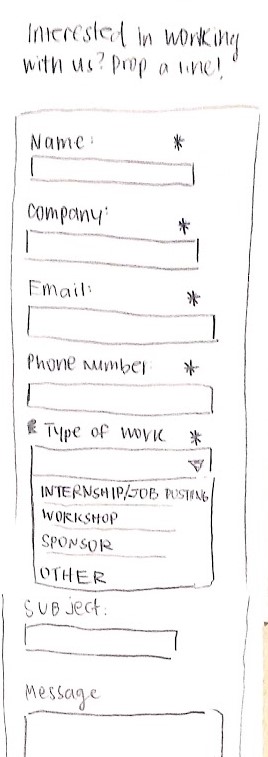 Interested in working
with us? Drop a line!
Name: *
Company: *
Email: *
Phone number *
Type of work *
INTERNSHIP/JOB POSTING
WORKSHOP
SPONSOR
OTHER
SUBject:
Message